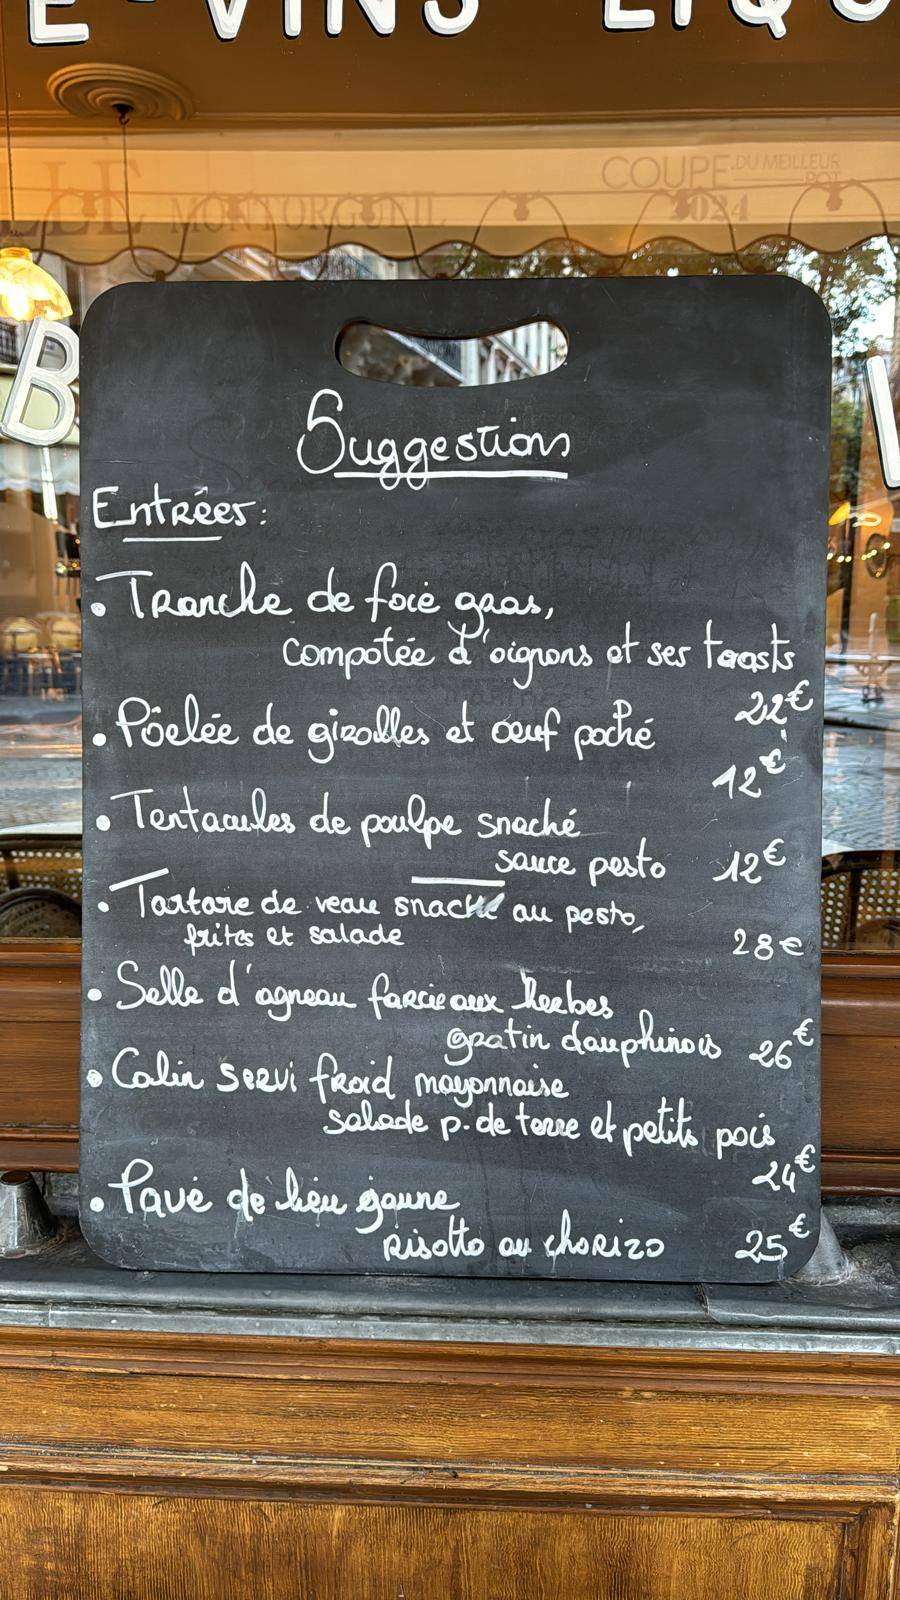 E · VINS LIQ
COUPE DU MEILLEUR
POT
MONTORGUEIL 2024
B
Suggestions
Entrées :
• Tranche de foie gras,
compotée d'oignons et ses toasts
22€
• Pôelée de girolles et oeuf poché
12€
• Tentacules de poulpe snaché
sauce pesto 12€
• Tartare de veau snacké au pesto,
frites et salade 28€
• Selle d'agneau farcie aux herbes
gratin dauphinois 26€
• Colin servi froid mayonnaise
salade p. de terre et petits pois
24€
• Pavé de lieu jaune
risotto au chorizo 25€